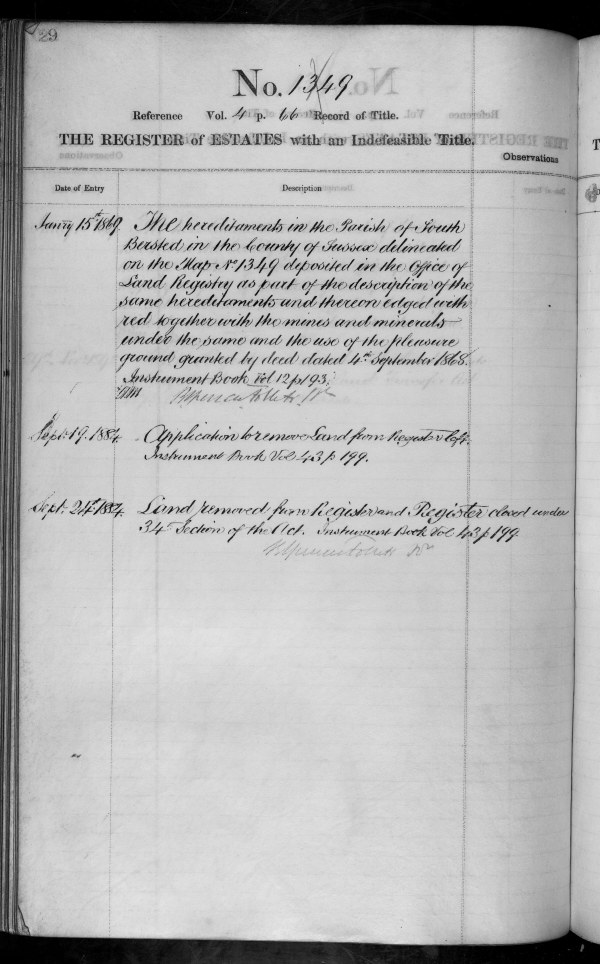 29
No. 1349
Reference Vol. 4 p. 66 Record of Title.
THE REGISTER of ESTATES with an Indefeasible Title.
Observations
Date of Entry Description
Janry 15th 1869. The hereditaments in the Parish of South
Bersted in the County of Sussex delineated
on the Map No 1349 deposited in the Office of
Land Registry as part of the description of the
same hereditaments and thereon edged with
red together with the mines and minerals
under the same and the use of the pleasure
ground granted by deed dated 4th September 1868.
Instrument Book Vol 12 p 193.
Sept. 19. 1884. Application to remove Land from Register left.
Instrument Book Vol 43 p 199.
Sept. 24th 1884. Land removed from Register and Register closed under
34th Section of the Act. Instrument Book Vol 43 p 199